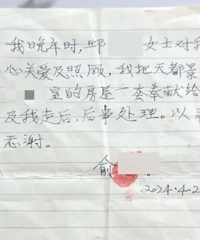 我晚年时，邱 女士对我
心关爱及照顾，我把天都景
室的房屋一套奉献给
及我走后，后事处理。以表
感谢。
俞
2024.4.2